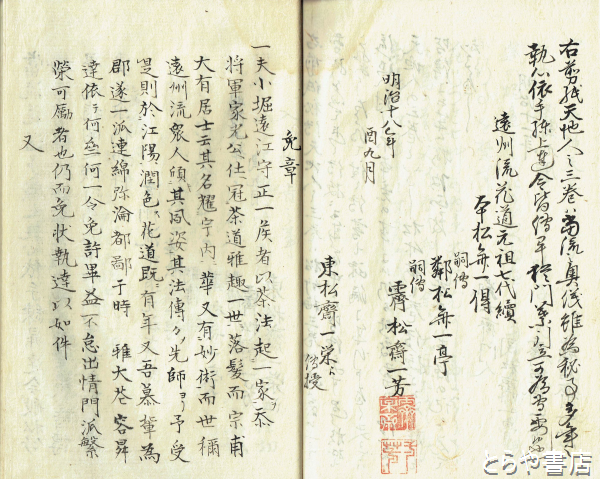 右剪紙天地人之三巻当流奥儀雖為秘事多年
執心依手練上達令皆傳畢於門葉
遠州流花道元祖七代續
本松斎一得
嗣傳
鄰松斎一亭
嗣傳
霽松斎一芳
明治十八年
酉九月
東松齋一栄ゟ
傳授
免章
一夫小堀遠江守正一矦者以茶法起一家忝
将軍家光公仕冠茶道雅趣一世落髪而宗甫
大有居士云其名耀宇内華又有妙術而世稱
遠州流衆人傾其風姿其法傳先師ヨリ予受
是則於江陽潤色花道既有年又吾慕輩為
郡遂一派連綿弥淪都鄙于時 雅大 容昇
達依何 何一令免許畢益不怠出情門派繁
榮可励者也仍而免状執達以如件
又
とらや書店